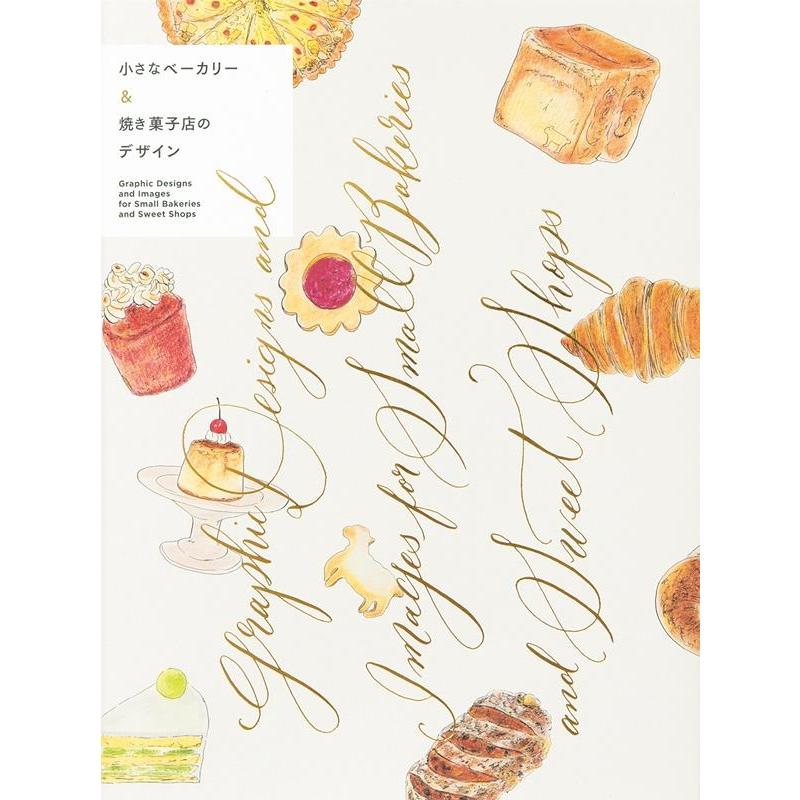 小さなベーカリー
&
焼き菓子店の
デザイン
Graphic Designs
and Images
for Small Bakeries
and Sweet Shops
Graphic Designs and
Images for Small Bakeries
and Sweet Shops